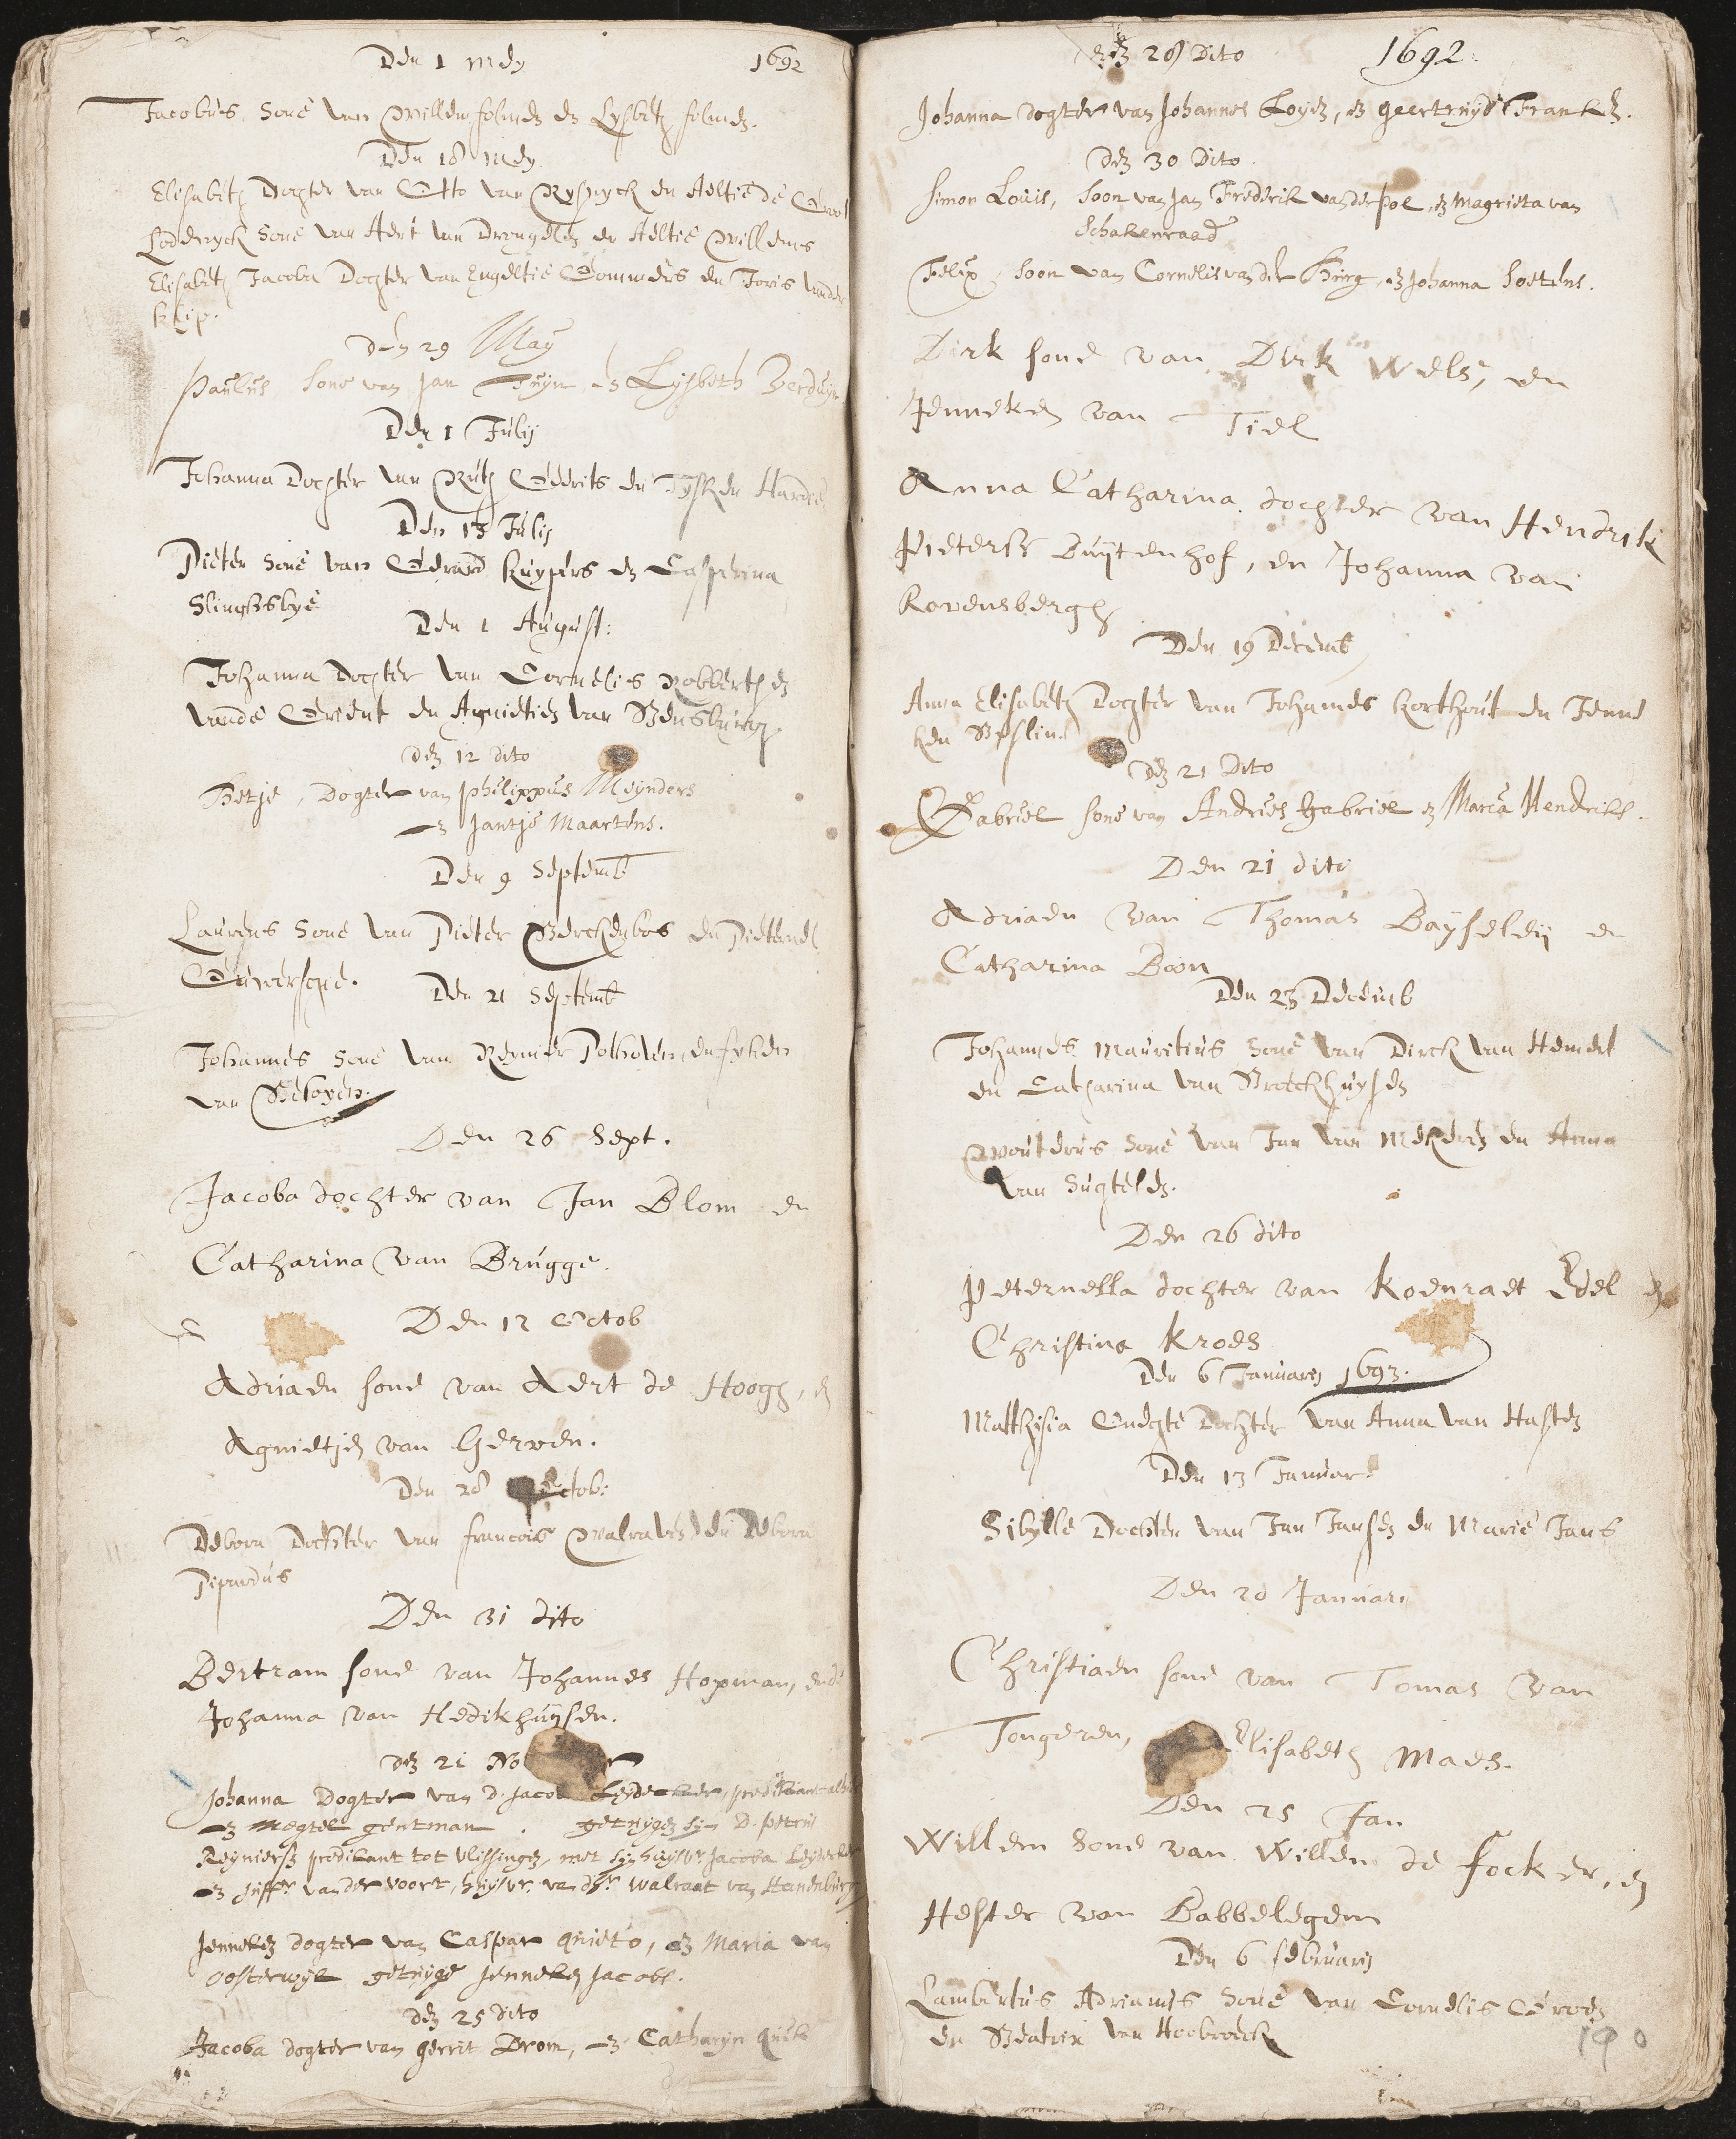 Den 1 Mey 1692
Jacobus Sone van Willem en Lysbeth
Den 18 Mey
Elisabeth Dochter van Otto van Ryswyck en Aeltie de
Lodewyck Sone van Aert van Drongelen en Aeltie Willems
Elisabeth Jacoba Dochter van Engeltie Gommers en Joris vander
klip.
den 29 May
Paulus Sone van Jan Tuyn en Lysbeth Verduyn
Den 1 Julij
Johanna Dochter van Ruth Gerrits en Hardie
Den 13 Julij
Pieter Sone van Gerard Kuypers en Casperina
Slingsbye
Den 1 August:
Johanna Dochter van Cornelis Robberth en
vande Grient en Agnietien van Rensburgh
den 12 dito
Betje, Dogter van philippus Meynders
en Jantje Maartens.
Den 9 Septemb
Laurens Sone van Pieter Berckenbos en Pieternel
Den 21 Septemb
Johannes Sone van Reynier Potholen en fyken
van Beloyen.
Den 26 Sept.
Jacoba dochter van Jan Blom en
Catharina van Brugge.
Den 12 Octob
Adriaen sone van Aert de Hoogh, en
Agnietjen van Gerwen.
Den 28 Octob:
Debora Dochter van francois Walraven en Debora
Den 31 dito
Bertram sone van Johannes Hopman, ende
Johanna van Hedikhuysen.
den 21 No
Johanna Dogter van D. Jacob Leydecker, predikant
en Megtel gentman. getuygen syn D. petrus
Reyniersz predikant tot vlissingen, met syn huysvr. Jacoba Leydecker
en Juffr. vander voort, huysvr. van dhr. walraat van Hanenburg
Jenneken dogter van Caspar quieto, en Maria van
Oosterwyk getuyge Jenneken Jacobs.
den 25 dito
Jacoba dogter van gerrit Drom, en Catharyn
den 28 Dito 1692.
Johanna dogter van Johannes Loyen, en geertruyd Franken.
den 30 Dito.
Simon Louis, Soon van Jan Frederik vanderpoel, en Magrieta van
Schakenraad
Felix, Soon van Cornelis van der Burg, en Johanna Soetens.
Dirk sone van Dirk Wels, en
Jenneken van Tiel
Anna Catharina dochter van Hendrik
Pietersz Buytenhof, en Johanna van
Rovensbergh
Den 19 Decemb
Anna Elisabeth Dochter van Johannes Korthout en Jenne
ken
den 21 Dito
Gabriel sone van Andries gabriel en Maria Hendriks.
Den 21 dito
Adriaen van Thomas Bayseley en
Catharina Boon
Den 23 Decemb
Johannes Mauritius Sone van Dirck van Hemert
en Catharina van Broeckhuysen
Wouterus Sone van Jan van Mekeren en Anna
van Sugtelen.
Den 26 dito
Peternella dochter van Koenraet Edel en
Christina Kroes
Den 6 Januarij 1693.
Matthysia Onegte Dochter van Anna van Hasten
Den 13 Januar
Sibylle Dochter van Jan Jansen en Marie Jans
Den 20 Januari
Christiaen sone van Tomas van
Tongeren, Elisabeth Maes.
Den 25 Jan
Willem Sone van Willem de focker, en
Hester van Babbelegem
Den 6 februarij
Lambertus Adrianus Sone van Cornelis
en Beatrix van Hoobroeck
190